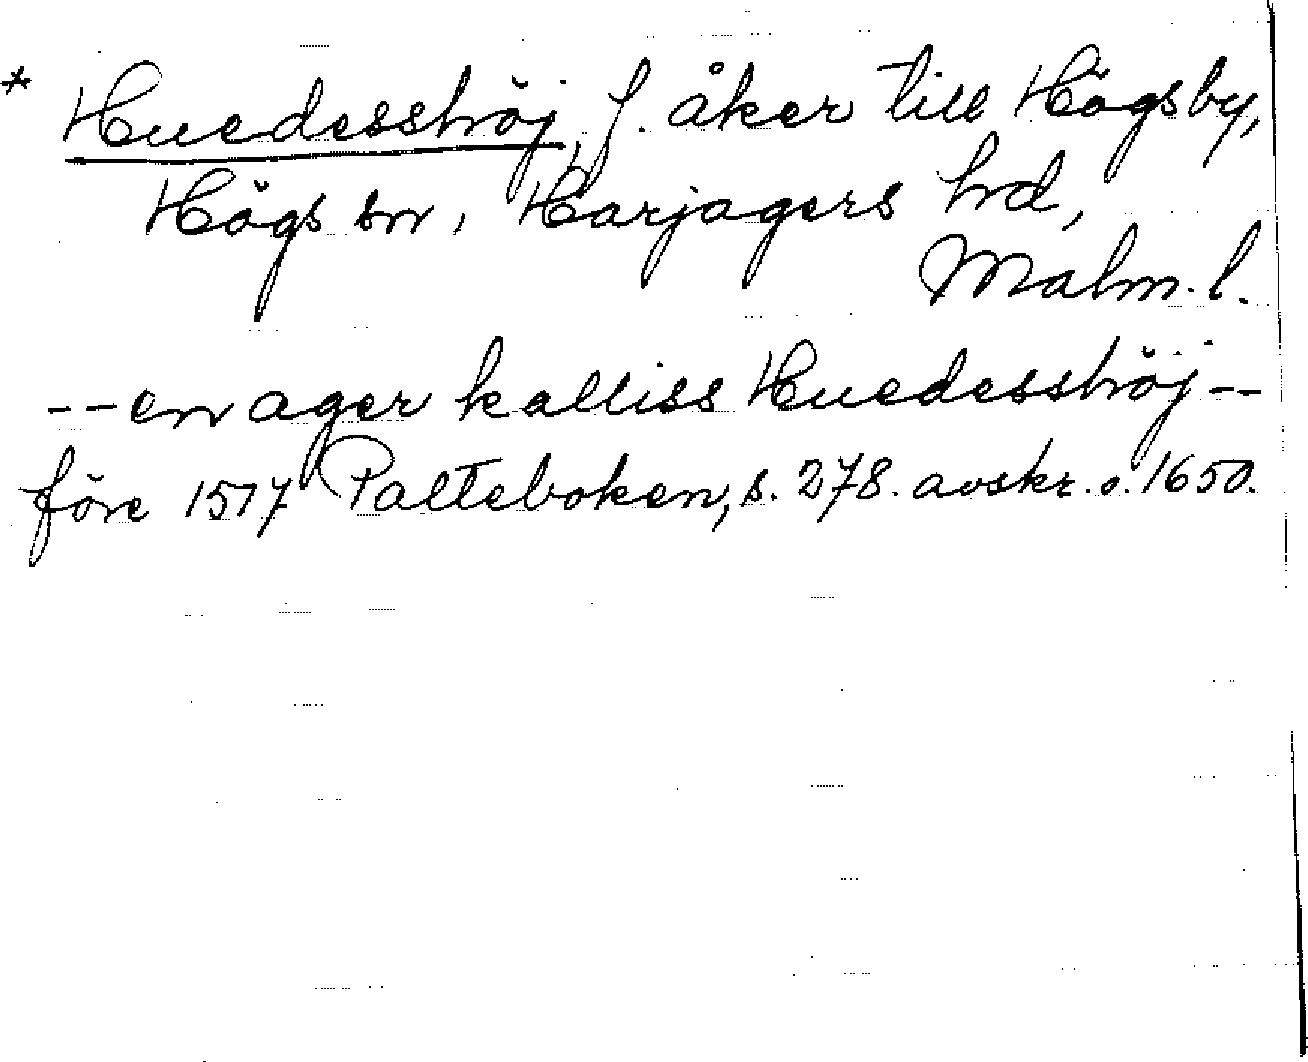 * Huedesshöj, f. åker till Högs by,
Högs sn, Harjagers hd,
Malm. l.
-- en ager kalliss Huedesshöj --
före 1517 Palteboken, s. 278. avskr. o. 1650.